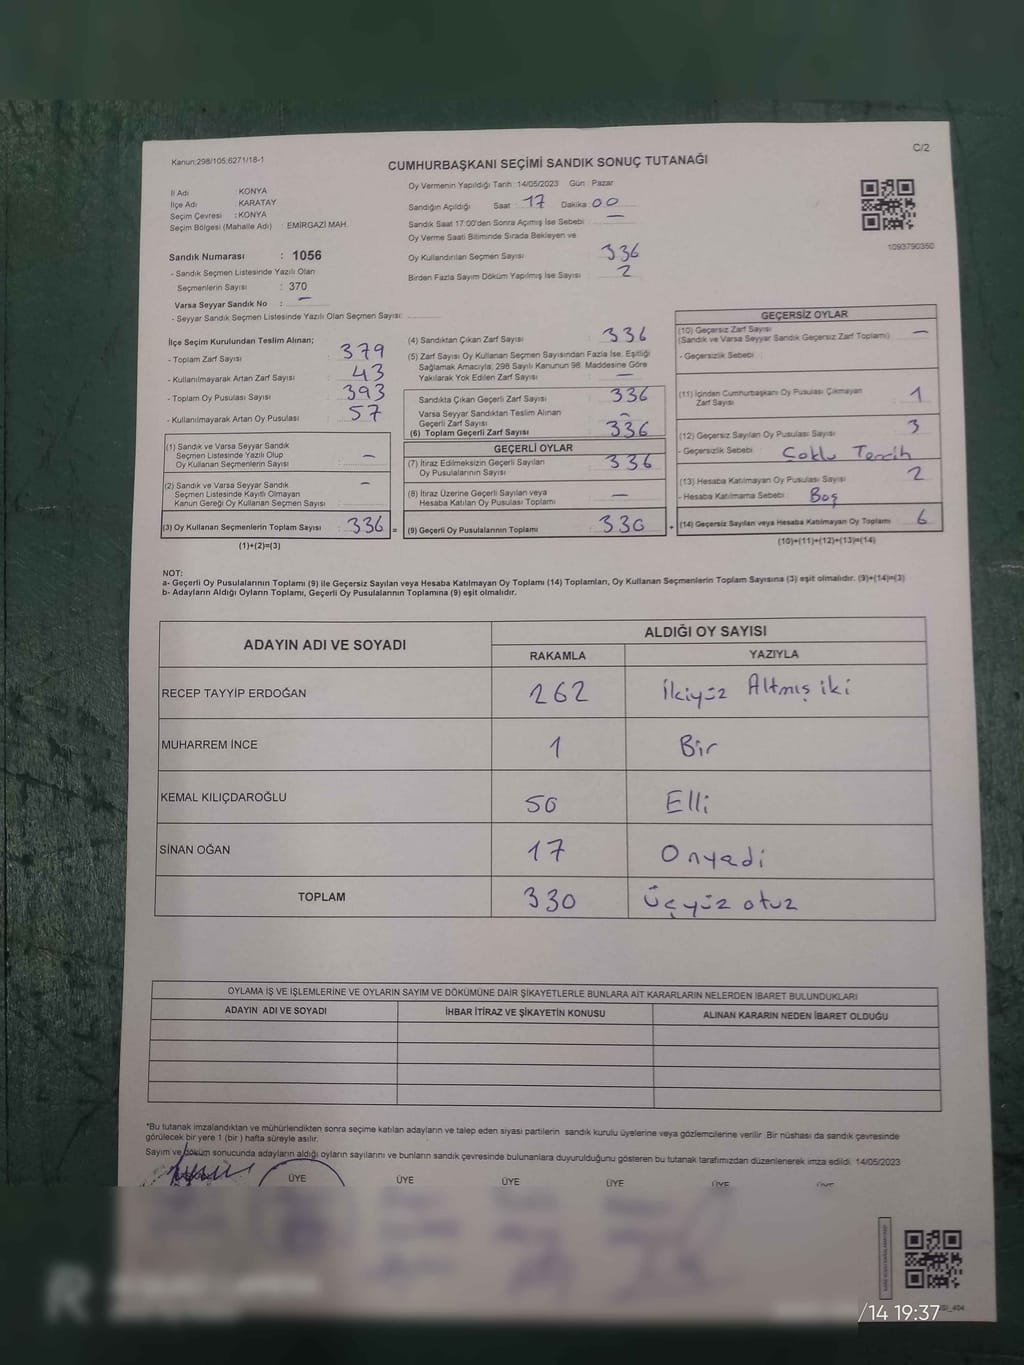 Kanun;298/105;6271/18-1
C/2
CUMHURBAŞKANI SEÇİMİ SANDIK SONUÇ TUTANAĞI
İl Adı : KONYA
İlçe Adı : KARATAY
Seçim Çevresi : KONYA
Seçim Bölgesi (Mahalle Adı) : EMİRGAZİ MAH.
Sandık Numarası : 1056
- Sandık Seçmen Listesinde Yazılı Olan
Seçmenlerin Sayısı : 370
Varsa Seyyar Sandık No : —
- Seyyar Sandık Seçmen Listesinde Yazılı Olan Seçmen Sayısı:
Oy Vermenin Yapıldığı Tarih: 14/05/2023 Gün : Pazar
Sandığın Açıldığı Saat : 17 Dakika : 00
Sandık Saat 17:00'den Sonra Açımış İse Sebebi : —
Oy Verme Saati Bitiminde Sırada Bekleyen ve
Oy Kullandırılan Seçmen Sayısı : 336
Birden Fazla Sayım Döküm Yapılmış İse Sayısı : 2
1093790350
İlçe Seçim Kurulundan Teslim Alınan;
- Toplam Zarf Sayısı : 379
- Kullanılmayarak Artan Zarf Sayısı : 43
- Toplam Oy Pusulası Sayısı : 393
- Kullanılmayarak Artan Oy Pusulası : 57
(1) Sandık ve Varsa Seyyar Sandık
Seçmen Listesinde Yazılı Olup
Oy Kullanan Seçmenlerin Sayısı : —
(2) Sandık ve Varsa Seyyar Sandık
Seçmen Listesinde Kayıtlı Olmayan
Kanun Gereği Oy Kullanan Seçmen Sayısı : —
(3) Oy Kullanan Seçmenlerin Toplam Sayısı : 336 =
(1)+(2)=(3)
(4) Sandıktan Çıkan Zarf Sayısı : 336
(5) Zarf Sayısı Oy Kullanan Seçmen Sayısından Fazla İse, Eşitliği
Sağlamak Amacıyla, 298 Sayılı Kanunun 98. Maddesine Göre
Yakılarak Yok Edilen Zarf Sayısı : —
Sandıkta Çıkan Geçerli Zarf Sayısı : 336
Varsa Seyyar Sandıktan Teslim Alınan
Geçerli Zarf Sayısı : —
(6) Toplam Geçerli Zarf Sayısı : 336
GEÇERLİ OYLAR
(7) İtiraz Edilmeksizin Geçerli Sayılan
Oy Pusulalarının Sayısı : 336
(8) İtiraz Üzerine Geçerli Sayılan veya
Hesaba Katılan Oy Pusulası Toplamı : —
(9) Geçerli Oy Pusulalarının Toplamı : 330 +
GEÇERSİZ OYLAR
(10) Geçersiz Zarf Sayısı
(Sandık ve Varsa Seyyar Sandık Geçersiz Zarf Toplamı) : —
- Geçersizlik Sebebi :
(11) İçinden Cumhurbaşkanı Oy Pusulası Çıkmayan
Zarf Sayısı : 1
(12) Geçersiz Sayılan Oy Pusulası Sayısı : 3
- Geçersizlik Sebebi : Çoklu Tercih
(13) Hesaba Katılmayan Oy Pusulası Sayısı : 2
- Hesaba Katılmama Sebebi : Boş
(14) Geçersiz Sayılan veya Hesaba Katılmayan Oy Toplamı : 6
(10)+(11)+(12)+(13)=(14)
NOT:
a- Geçerli Oy Pusulalarının Toplamı (9) ile Geçersiz Sayılan veya Hesaba Katılmayan Oy Toplamı (14) Toplamları, Oy Kullanan Seçmenlerin Toplam Sayısına (3) eşit olmalıdır. (9)+(14)=(3)
b- Adayların Aldığı Oyların Toplamı, Geçerli Oy Pusulalarının Toplamına (9) eşit olmalıdır.
ADAYIN ADI VE SOYADI ALDIĞI OY SAYISI
RAKAMLA YAZIYLA
RECEP TAYYİP ERDOĞAN 262 İkiyüz Altmış iki
MUHARREM İNCE 1 Bir
KEMAL KILIÇDAROĞLU 50 Elli
SİNAN OĞAN 17 Onyadi
TOPLAM 330 Üçyüz otuz
OYLAMA İŞ VE İŞLEMLERİNE VE OYLARIN SAYIM VE DÖKÜMÜNE DAİR ŞİKAYETLERLE BUNLARA AİT KARARLARIN NELERDEN İBARET BULUNDUKLARI
ADAYIN ADI VE SOYADI İHBAR İTİRAZ VE ŞİKAYETİN KONUSU ALINAN KARARIN NEDEN İBARET OLDUĞU
*Bu tutanak imzalandıktan ve mühürlendikten sonra seçime katılan adayların ve talep eden siyasi partilerin sandık kurulu üyelerine veya gözlemcilerine verilir. Bir nüshası da sandık çevresinde
görülecek bir yere 1 (bir) hafta süreyle asılır.
Sayım ve döküm sonucunda adayların aldığı oyların sayılarını ve bunların sandık çevresinde bulunanlara duyurulduğunu gösteren bu tutanak tarafımızdan düzenlenerek imza edildi. 14/05/2023
ÜYE ÜYE ÜYE ÜYE ÜYE ÜYE
/14 19:37